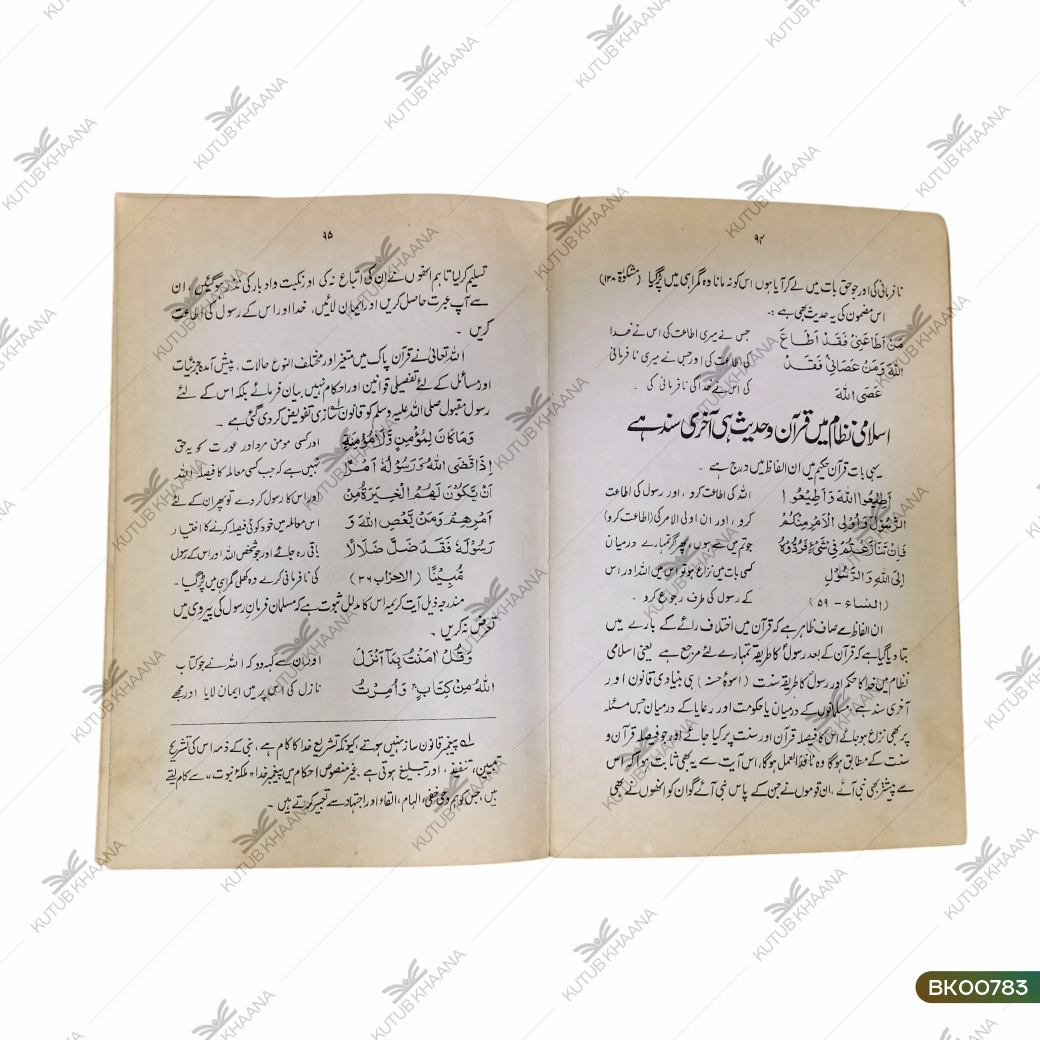 ۹۴
نافرمانی کی اور جو حق بات میں لے کر آیا ہوں اس کو نہ مانا وہ گمراہی میں پڑ گیا (مشکوٰۃ ۱۳۸)
اس مضمون کی یہ حدیث بھی ہے :۔
مَنْ اَطَاعَنِیْ فَقَدْ اَطَاعَ
اللهَ وَمَنْ عَصَانِیْ فَقَدْ
عَصَی اللهَ
جس نے میری اطاعت کی اس نے خدا
کی اطاعت کی اور جس نے میری نافرمانی
کی اس نے خدا کی نافرمانی کی ۔
اسلامی نظام میں قرآن و حدیث ہی آخری سند ہے
یہی بات قرآن حکیم میں ان الفاظ میں درج ہے ۔
اَطِیْعُوا اللهَ وَاَطِیْعُوا
الرَّسُوْلَ وَاُولِی الْاَمْرِ مِنْکُمْ
فَاِنْ تَنَازَعْتُمْ فِیْ شَیْءٍ فَرُدُّوْہُ
اِلَی اللهِ وَالرَّسُوْلِ
(النساء - ۵۹)
اللہ کی اطاعت کرو ، اور رسول کی اطاعت
کرو ، اور ان اولی الامر کی (اطاعت کرو)
جو تم میں سے ہوں، پھر اگر تمہارے درمیان
کسی بات میں نزاع ہو تو اس میں اللہ اور اس
کے رسول کی طرف رجوع کرو ۔
ان الفاظ سے صاف ظاہر ہے کہ قرآن میں اختلاف رائے کے بارے میں
بتا دیا گیا ہے کہ قرآن کے بعد رسولؐ کا طریقہ تمہارے لئے مرجع ہے یعنی اسلامی
نظام میں خدا کا حکم اور رسول کا طریقہ سنت (اسوۂ حسنہ) ہی بنیادی قانون اور
آخری سند ہے، مسلمانوں کے درمیان یا حکومت اور رعایا کے درمیان جس مسئلہ
پر بھی نزاع ہو جائے اس کا فیصلہ قرآن اور سنت پر کیا جائے اور جو فیصلہ قرآن و
سنت کے مطابق ہوگا وہ نافذ العمل ہوگا، اس آیت سے یہ بھی ثابت ہوا کہ اس
سے پیشتر بھی نبی آئے ، ان قوموں نے جن کے پاس نبی آئے گو ان کو انھوں نے بھی
۹۵
تسلیم کر لیا تاہم انھوں نے ان کی اتباع نہ کی اور نکبت و ادبار کی نذر ہو گئیں، ان
سے آپ عبرت حاصل کریں اور ایمان لائیں، خدا اور اس کے رسول کی اطاعت
کریں ۔
اللہ تعالیٰ نے قرآن پاک میں متغیر اور مختلف النوع حالات، پیش آمدہ جزئیات
اور مسائل کے لئے تفصیلی قوانین اور احکام نہیں بیان فرمائے بلکہ اس کے لئے
رسول مقبول صلی اللہ علیہ وسلم کو قانون سازی تفویض کر دی گئی ہے ۔
وَمَا کَانَ لِمُؤْمِنٍ وَّلَا مُؤْمِنَةٍ
اِذَا قَضَی اللهُ وَرَسُوْلُهٗ اَمْرًا
اَنْ یَّکُوْنَ لَهُمُ الْخِیَرَةُ مِنْ
اَمْرِهِمْ وَمَنْ یَّعْصِ اللهَ وَ
رَسُوْلَهٗ فَقَدْ ضَلَّ ضَلَالًا
مُّبِیْنًا (الاحزاب ۳۶)
اور کسی مومن مرد اور عورت کو یہ حق
نہیں ہے کہ جب کسی معاملہ کا فیصلہ اللہ
اور اس کا رسول کر دے تو پھر ان کے لئے
اس معاملہ میں خود کوئی فیصلہ کرنے کا اختیار
باقی رہ جائے اور جو شخص اللہ اور اس کے رسول
کی نافرمانی کرے وہ کھلی گمراہی میں پڑ گیا ۔
مندرجہ ذیل آیت کریمہ اس کا مدلل ثبوت ہے کہ مسلمان فرمانِ رسول کی پیروی میں
تعرض نہ کریں ۔
وَقُلْ اٰمَنْتُ بِمَا اَنْزَلَ
اللهُ مِنْ کِتَابٍ وَاُمِرْتُ
اور ان سے کہہ دو کہ اللہ نے جو کتاب
نازل کی اس پر میں ایمان لایا اور مجھے
لے پیغمبر قانون ساز نہیں ہوتے، کیونکہ تشریع خدا کا کام ہے ، نبی کے ذمہ اس کی تشریح
تبیین، تنفیذ، اور تبلیغ ہوتی ہے غیر منصوص احکام میں پیغمبر خدا "ملکۂ نبوت" سے کام لیتے
ہیں، جس کو ہم وحی خفی، الہام، القاء اور اجتہاد سے تعبیر کرتے ہیں ۔
KUTUB KHAANA
BK00783